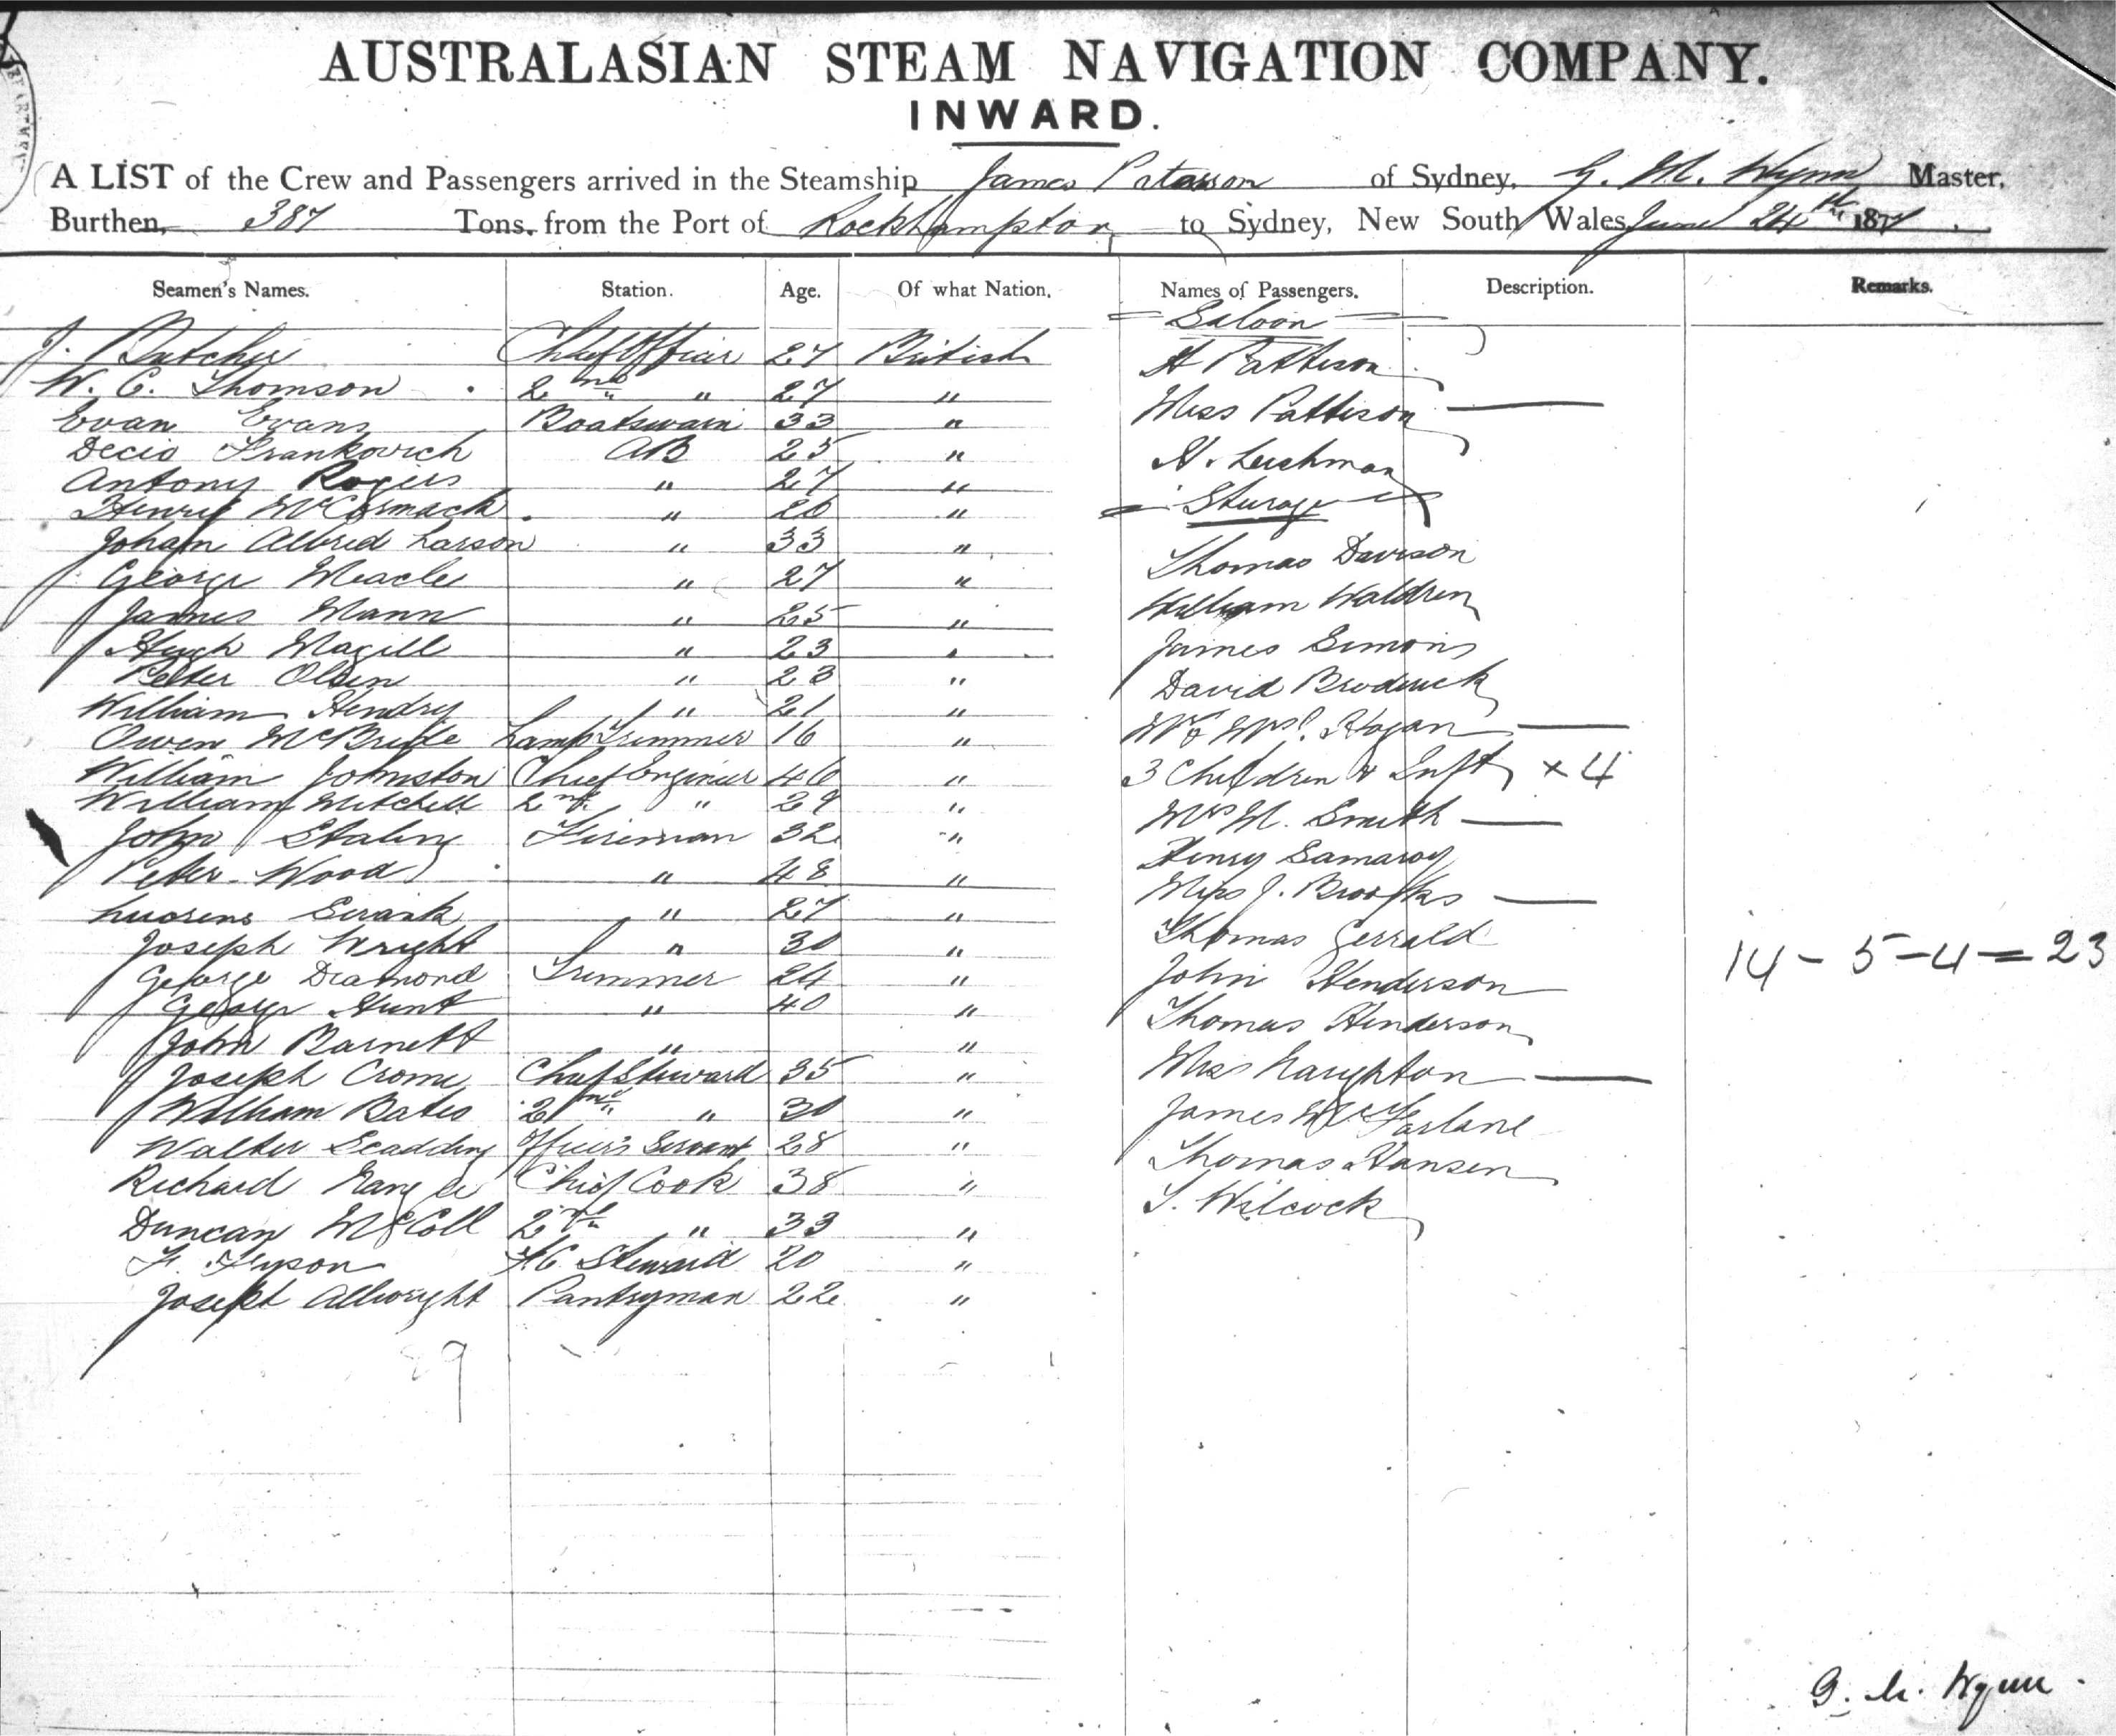 AUSTRALASIAN STEAM NAVIGATION COMPANY.
INWARD.
A LIST of the Crew and Passengers arrived in the Steamship James Paterson of Sydney, G. M. Wynn Master,
Burthen, 387 Tons, from the Port of Rockhampton to Sydney, New South Wales June 24th 187
Seamen's Names. Station. Age. Of what Nation. Names of Passengers. Description. Remarks.
= Saloon =
J. Butcher Chief Officer 27 British
W. C. Thomson 2nd " 27 "
Evan Evans Boatswain 33 "
Decio Frankovich AB 25 "
Antony Rogers " 27 "
Henry McCormack " 26 "
Joham Albred Larson " 33 "
George Meacle " 27 "
James Mann " 25 "
Hugh Magill " 23 "
Peter Olsen " 23 "
William Hendry " 21 "
Owen McBride Lamp Trimmer 16 "
William Johnston Chief Engineer 46 "
William Mitchell 2nd " 29 "
John Staling Fireman 32 "
Peter Wood " 48 "
" 27 "
Joseph Wright " 30 "
George Diamond Trimmer 24 "
George Hunt " 40 "
John Barnett " "
Joseph Crome Chief Steward 35 "
William Bates 2nd " 30 "
Walter Scadding Officer's Servant 28 "
Richard Chief Cook 38 "
Duncan McColl 2nd " 33 "
F. Fyson F.C. Steward 20 "
Joseph Allwright Pantryman 22 "
H Pattison
Miss Pattison —
H. Leishman
= Steerage =
Thomas Davison
William Waldren
James Simons
David Broderick
Mr & Mrs. Hogan —
3 Children & Inft x 4
Mrs M. Smith —
Henry Samaroy
Miss J. Brookes —
Thomas Gerrald
John Henderson
Thomas Henderson
Miss Naughton —
James McFarlane
Thomas Hansen
T. Wilcock
14 - 5 - 4 = 23
29
G. M. Wynn.